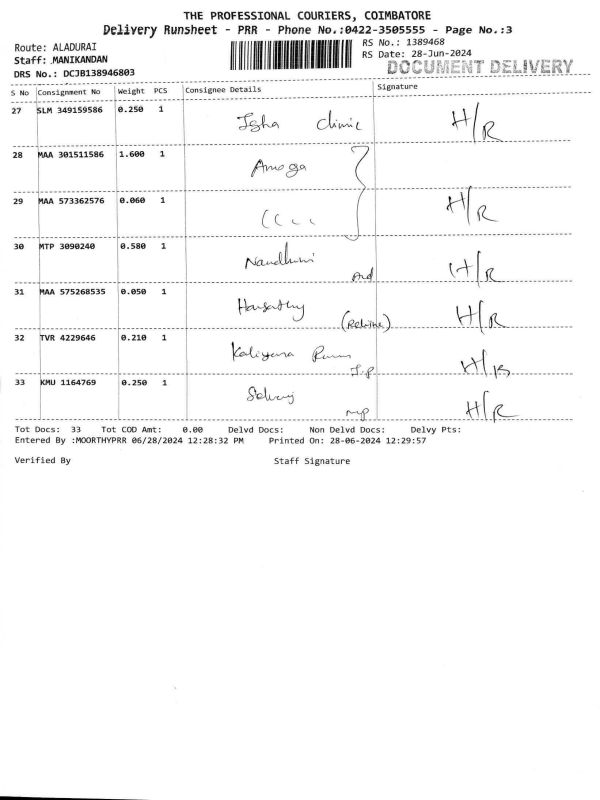 THE PROFESSIONAL COURIERS, COIMBATORE
Delivery Runsheet - PRR - Phone No.:0422-3505555 - Page No.:3
Route: ALADURAI
RS No.: 1389468
Staff: MANIKANDAN
RS Date: 28-Jun-2024
DRS No.: DCJB138946803
DOCUMENT DELIVERY
S No Consignment No Weight PCS Consignee Details Signature
27 SLM 349159586 0.250 1 Isha Clinic H/R
28 MAA 301511586 1.600 1 Amoga
29 MAA 573362576 0.060 1 H/R
30 MTP 3090240 0.580 1 Nandhini H/R
31 MAA 575268535 0.050 1 H/R
32 TVR 4229646 0.210 1 H/R
33 KMU 1164769 0.250 1 Selvaraj mp H/R
Tot Docs: 33 Tot COD Amt: 0.00 Delvd Docs: Non Delvd Docs: Delvy Pts:
Entered By :MOORTHYPRR 06/28/2024 12:28:32 PM Printed On: 28-06-2024 12:29:57
Verified By Staff Signature